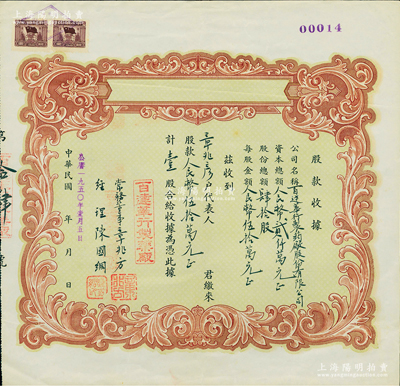 上海阳明拍卖
00014
股款收據
公司名稱百達華行製藥廠股份有限公司
資本總額人民幣貳仟萬元正
股份總額肆拾股
每股金額人民幣伍拾萬元正
茲收到
章兆彥代表人 君繳來
股款人民幣伍拾萬元正
計壹股合給收據為憑此據
百達華行製藥廠
常務董事章兆方
經理陳國綱
公曆一九五〇年 月五日
中華民國 年 月 日
第 號
上海阳明拍卖